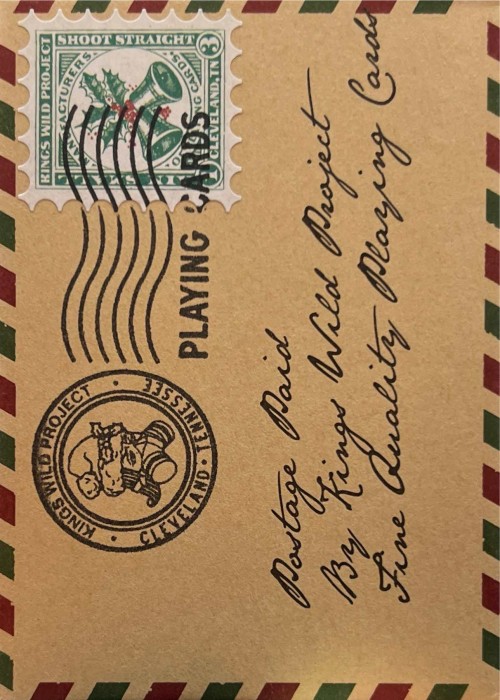 KINGS WILD PROJECT
SHOOT STRAIGHT
3
CLEVELAND, TN
PLAYING CARDS
KINGS WILD PROJECT
CLEVELAND · TENNESSEE
Postage Paid
By Kings Wild Project
Fine Quality Playing Cards